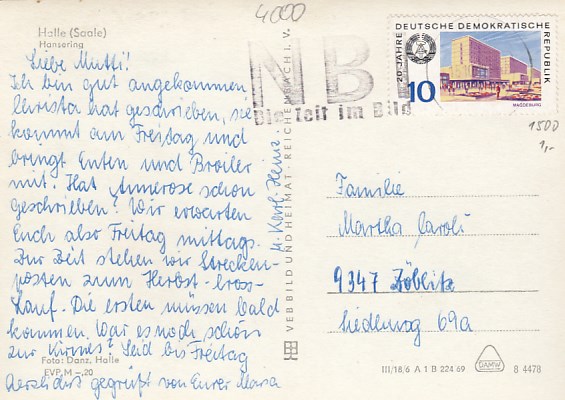 4000
Halle (Saale)
Hansering
Liebe Mutti!
Ich bin gut angekommen
Christa hat geschrieben, sie
kommt am Freitag und
bringt Enten und Broiler
mit. Hat Annerose schon
geschrieben? Wir erwarten
Euch also Freitag mittags.
Zur Zeit stehen wir Strecken-
posten zum Herbst-Cross-
Lauf. Die ersten müssen bald
kommen. War es noch schön
zur Kirmes? Seid bis Freitag
Foto: Danz, Halle
EVP M -,20
herzlichst gegrüßt von Eurer Maria
u. Karl-Heinz
VEB BILD UND HEIMAT · REICHENBACH I. V.
NB
Die Zeit im Bild
20 JAHRE DEUTSCHE DEMOKRATISCHE REPUBLIK
10
MAGDEBURG
1500
1,-
Familie
Martha Caroli
9347 Zöblitz
Siedlerweg 69a
III/18/6 A 1 B 224 69
GAMW
8 4478